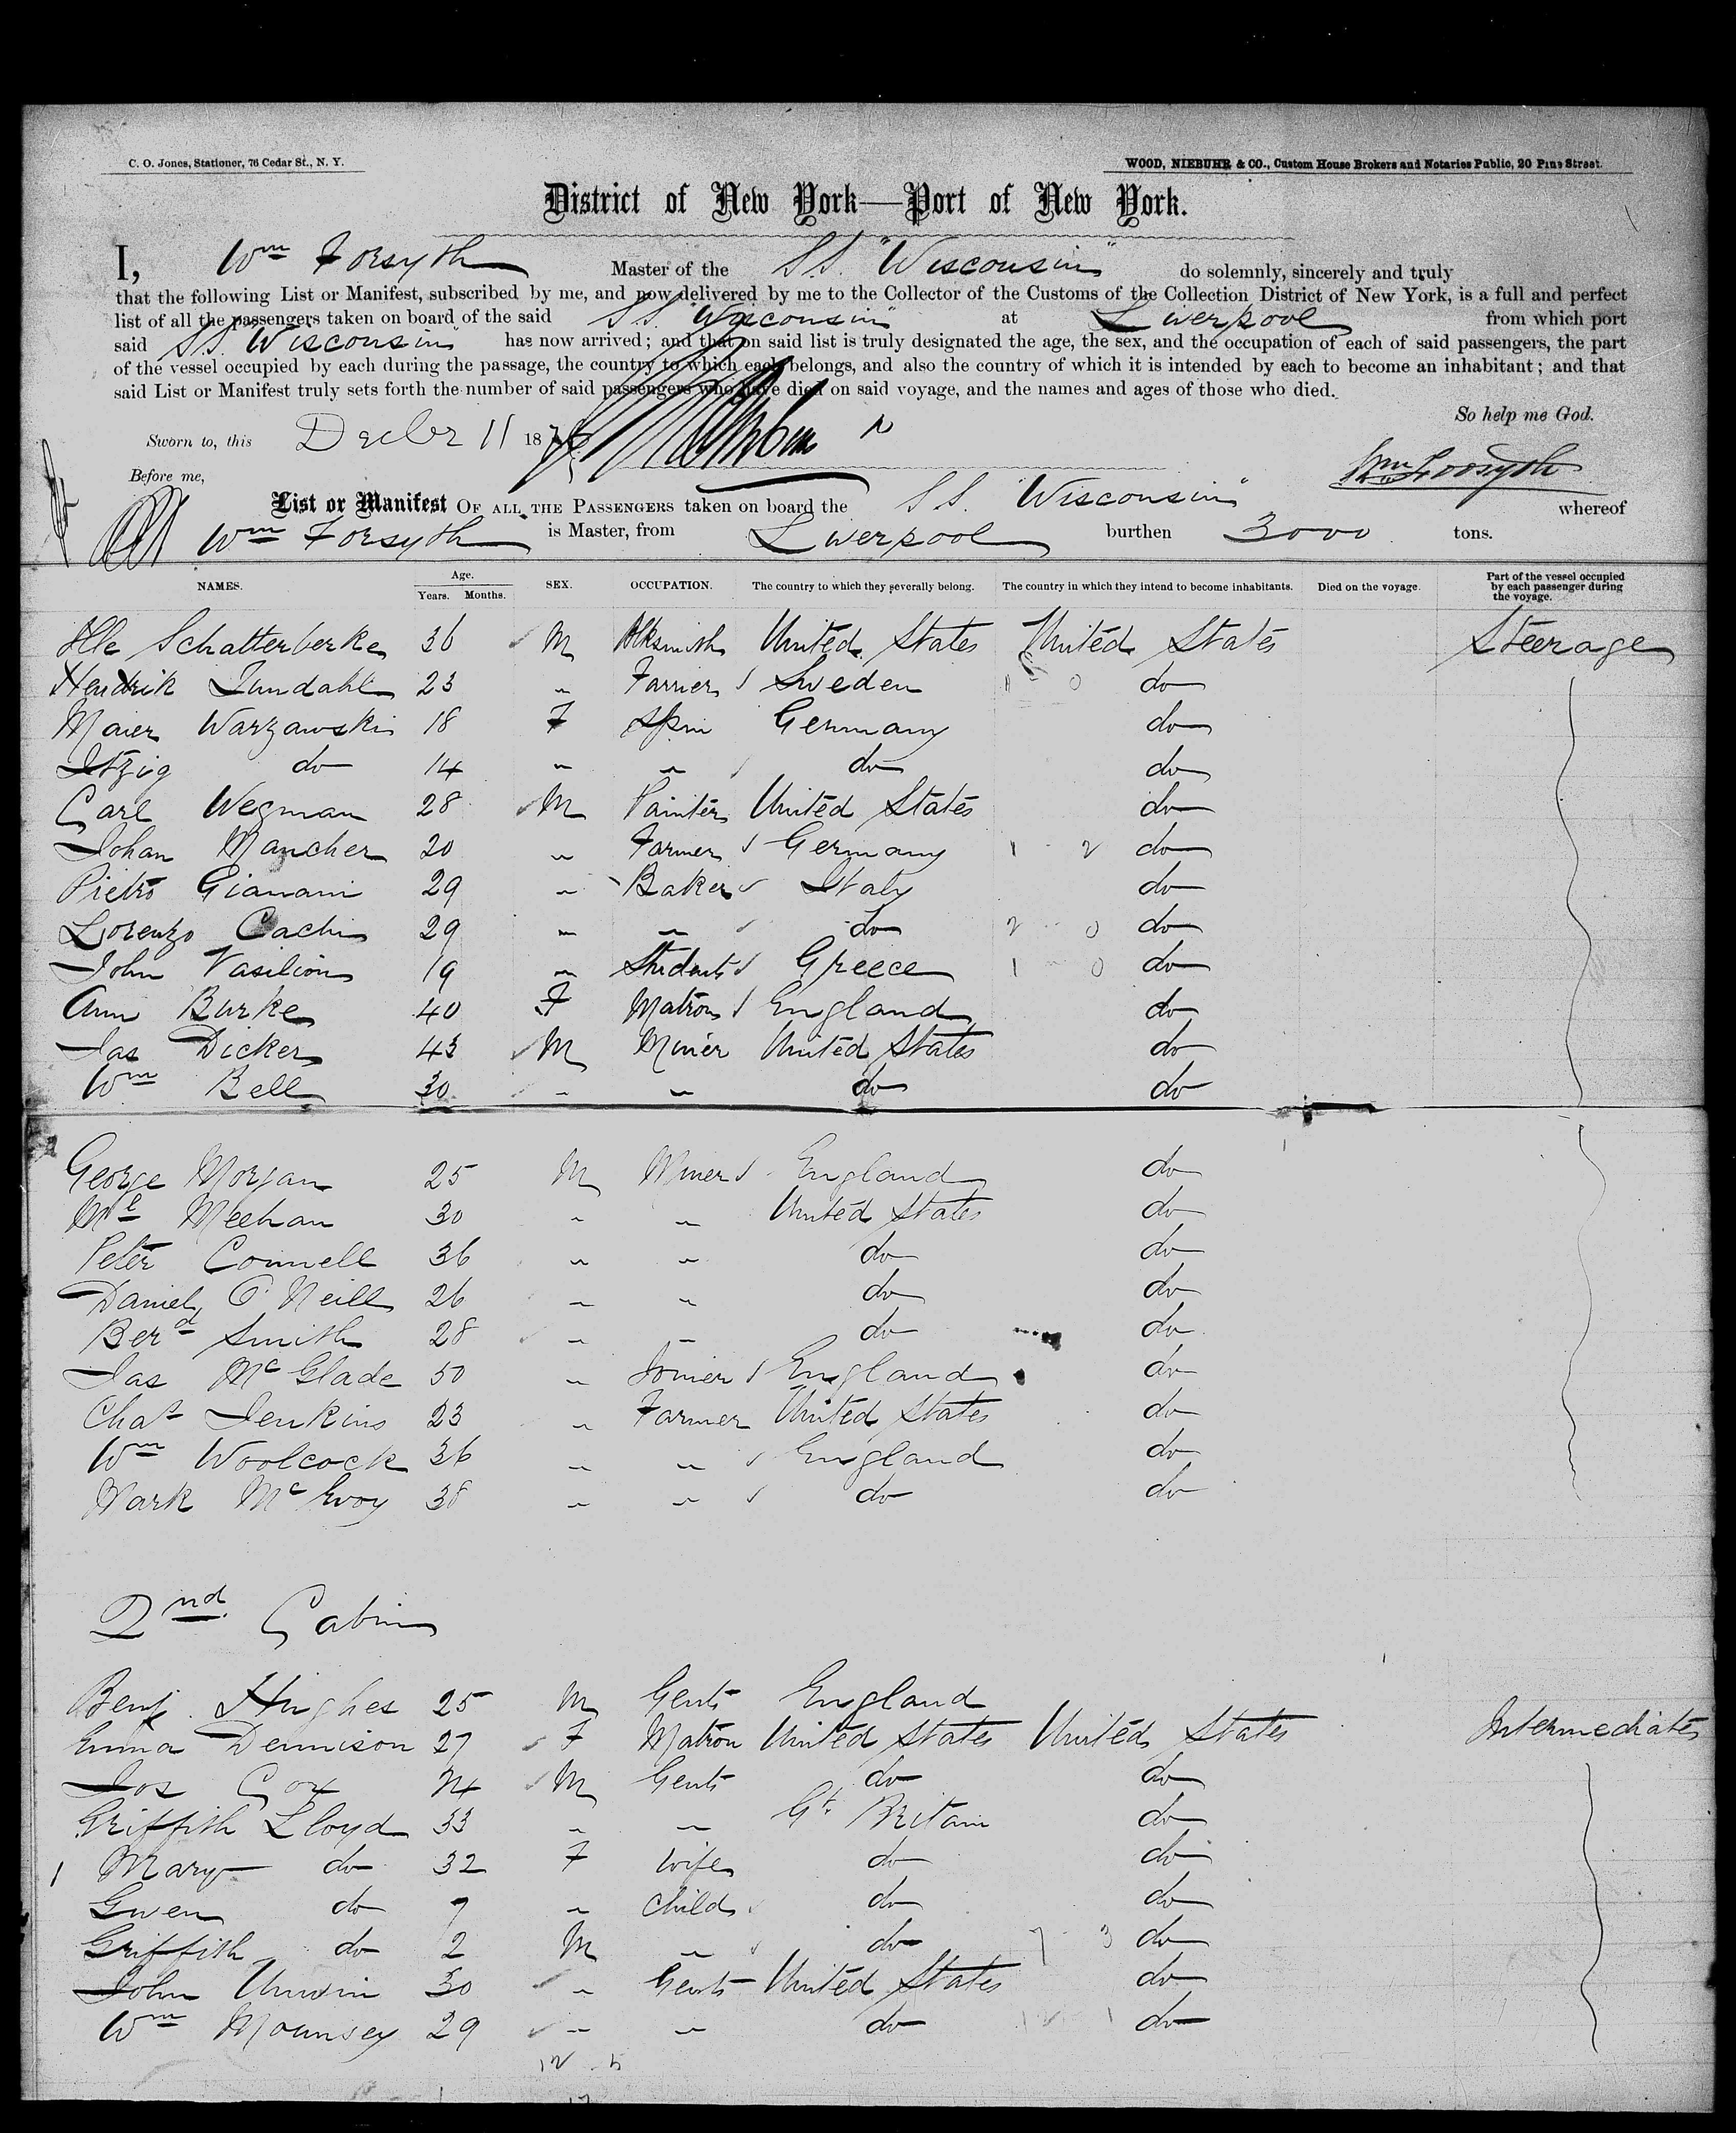 C. O. Jones, Stationer, 76 Cedar St., N. Y.
WOOD, NIEBUHR & CO., Custom House Brokers and Notaries Public, 20 Pine Street.
District of New York—Port of New York.
I, Wm Forsyth Master of the S.S. "Wisconsin" do solemnly, sincerely and truly
that the following List or Manifest, subscribed by me, and now delivered by me to the Collector of the Customs of the Collection District of New York, is a full and perfect
list of all the passengers taken on board of the said S.S. "Wisconsin" at Liverpool from which port
said S.S. "Wisconsin" has now arrived; and that on said list is truly designated the age, the sex, and the occupation of each of said passengers, the part
of the vessel occupied by each during the passage, the country to which each belongs, and also the country of which it is intended by each to become an inhabitant; and that
said List or Manifest truly sets forth the number of said passengers who have died on said voyage, and the names and ages of those who died.
So help me God.
Sworn to, this Decbr 11 187
Wm Forsyth
Before me,
List or Manifest OF ALL THE PASSENGERS taken on board the S.S. "Wisconsin" whereof
Wm Forsyth is Master, from Liverpool burthen 3000 tons.
NAMES. Age. Years. Months. SEX. OCCUPATION. The country to which they severally belong. The country in which they intend to become inhabitants. Died on the voyage. Part of the vessel occupied by each passenger during the voyage.
Olle Schatterberke 36 M Blksmith United States United States Steerage
Hendrik Lundahl 23 " Farmer Sweden do
Maier Warzawski 18 F Spin Germany do
Itzig do 14 " " do do
Carl Wegman 28 M Painter United States do
Johan Mancher 20 " Farmer Germany 1 - 2 do
Pietro Gianani 29 " Baker Italy do
Lorenzo Cachi 29 " " do 2 - 0 do
John Vasilion 19 " Student Greece 1 - 0 do
Ann Burke 40 F Matron England do
Jas Dicker 43 M Miner United States do
Wm Bell 30 " " do do
George Morgan 25 M Miner England do
Ml Meehan 30 " " United States do
Peter Connell 36 " " do do
Daniel O'Neill 26 " " do do
Berd Smith 28 " " do do
Jas McGlade 50 " Joiner England do
Chas Jenkins 23 " Farmer United States do
Wm Woolcock 36 " " England do
Mark McEvoy 38 " " do do
2nd Cabin
Benj. Hughes 25 M Gent England
Emma Dennison 27 F Matron United States United States Intermediate
Jos Cox 24 M Gent do do
Griffith Lloyd 33 " " Gt. Britain do
Mary do 32 F Wife do do
Gwen do 7 " Child do do
Griffith do 2 M " do 7 - 3 do
John Unwin 30 " Gent United States do
Wm Mounsey 29 " " do do